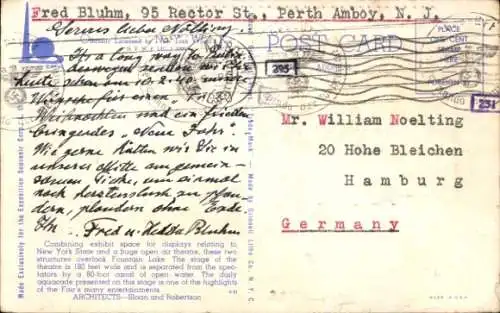 Fred Bluhm, 95 Rector St., Perth Amboy, N. J.
Servus lieber Nölting,
POST CARD
PLACE
ONE CENT
STAMP
HERE
It's a long way to
heute schon am 10.2.40. unsere
Wünsche für einen
Weihnachten und ein frieden
bringendes "Neue Jahr".
Wie gerne hätten wir Sie in
unserer Mitte am gemein-
samen Tische, um einmal
nach Herzenslust zu plau-
dern, plaudern ohne Ende
Ihr Fred u. Hedda Bluhm
295
251
Mr. William Noelting
20 Hohe Bleichen
Hamburg
Germany
Combining exhibit space for displays relating to
New York State and a huge open air theatre, these two
structures overlook Fountain Lake. The stage of the
theatre is 180 feet wide and is separated from the spec-
tators by a 60-foot canal of open water. The daily
aquacade presented on this stage is one of the highlights
of the Fair's many entertainments.
ARCHITECTS—Sloan and Robertson
Made Exclusively for the Exposition Souvenir Corp.
Made by Grinnell Litho Co. N.Y.C.
MADE IN U.S.A.